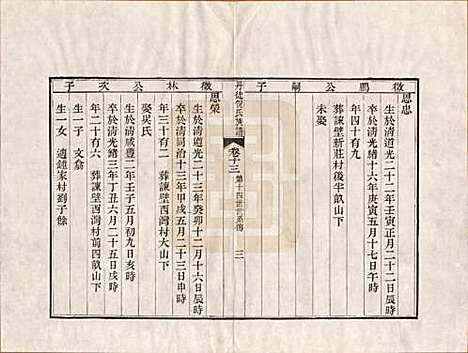 徵鵬公嗣子
思忠
生於清道光二十二年壬寅正月二十二日辰時
卒於清光緒十六年庚寅五月十七日午時
年四十有九
葬諫壁新莊村後半畝山下
未娶
丹徒倪氏族譜 卷十三 第十四世世系傳 三
徵林公次子
思榮
生於清道光二十三年癸卯十二月十六日辰時
卒於清同治十三年甲戌五月二十三日申時
年三十有二
葬諫壁西灣村大山下
娶吴氏
生於清咸豐二年壬子五月初九日亥時
卒於清光緒三年丁丑六月二十五日戌時
年二十有六
葬諫壁西灣村前四畝山下
生一子
文翕
生一女
適鍾家村劉子餘